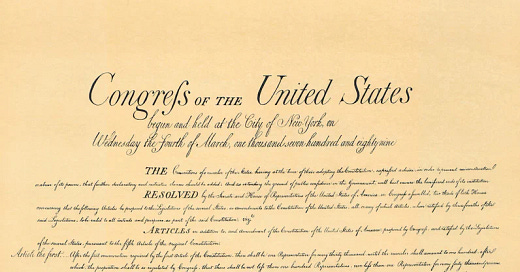 Congreſs OF THE United States
begun and held at the City of New-York, on
Wednesday the fourth of March, one thousand seven hundred and eighty nine
THE Conventions of a number of the States, having at the time of their adopting the Constitution, expressed a desire, in order to prevent misconstruction
or abuse of its powers, that further declaratory and restrictive clauses should be added: And as extending the ground of public confidence in the Government, will best ensure the beneficent ends of its institution
RESOLVED by the Senate and House of Representatives of the United States of America, in Congreſs aſsembled, two thirds of both Houses
concurring that the following Articles be proposed to the Legislatures of the several States, as amendments to the Constitution of the United States, all, or any of which Articles, when ratified by three fourths of the
said Legislatures, to be valid to all intents and purposes, as part of the said Constitution; vizt
ARTICLES in addition to, and Amendment of the Constitution of the United States of America, proposed by Congreſs, and ratified by the Legislatures
of the several States, pursuant to the fifth Article of the original Constitution.
Article the first... After the first enumeration required by the first Article of the Constitution, there shall be one Representative for every thirty thousand, until the number shall amount to one hundred, after
which, the proportion shall be so regulated by Congreſs, that there shall be not leſs than one hundred Representatives, nor leſs than one Representative for every forty thousand persons